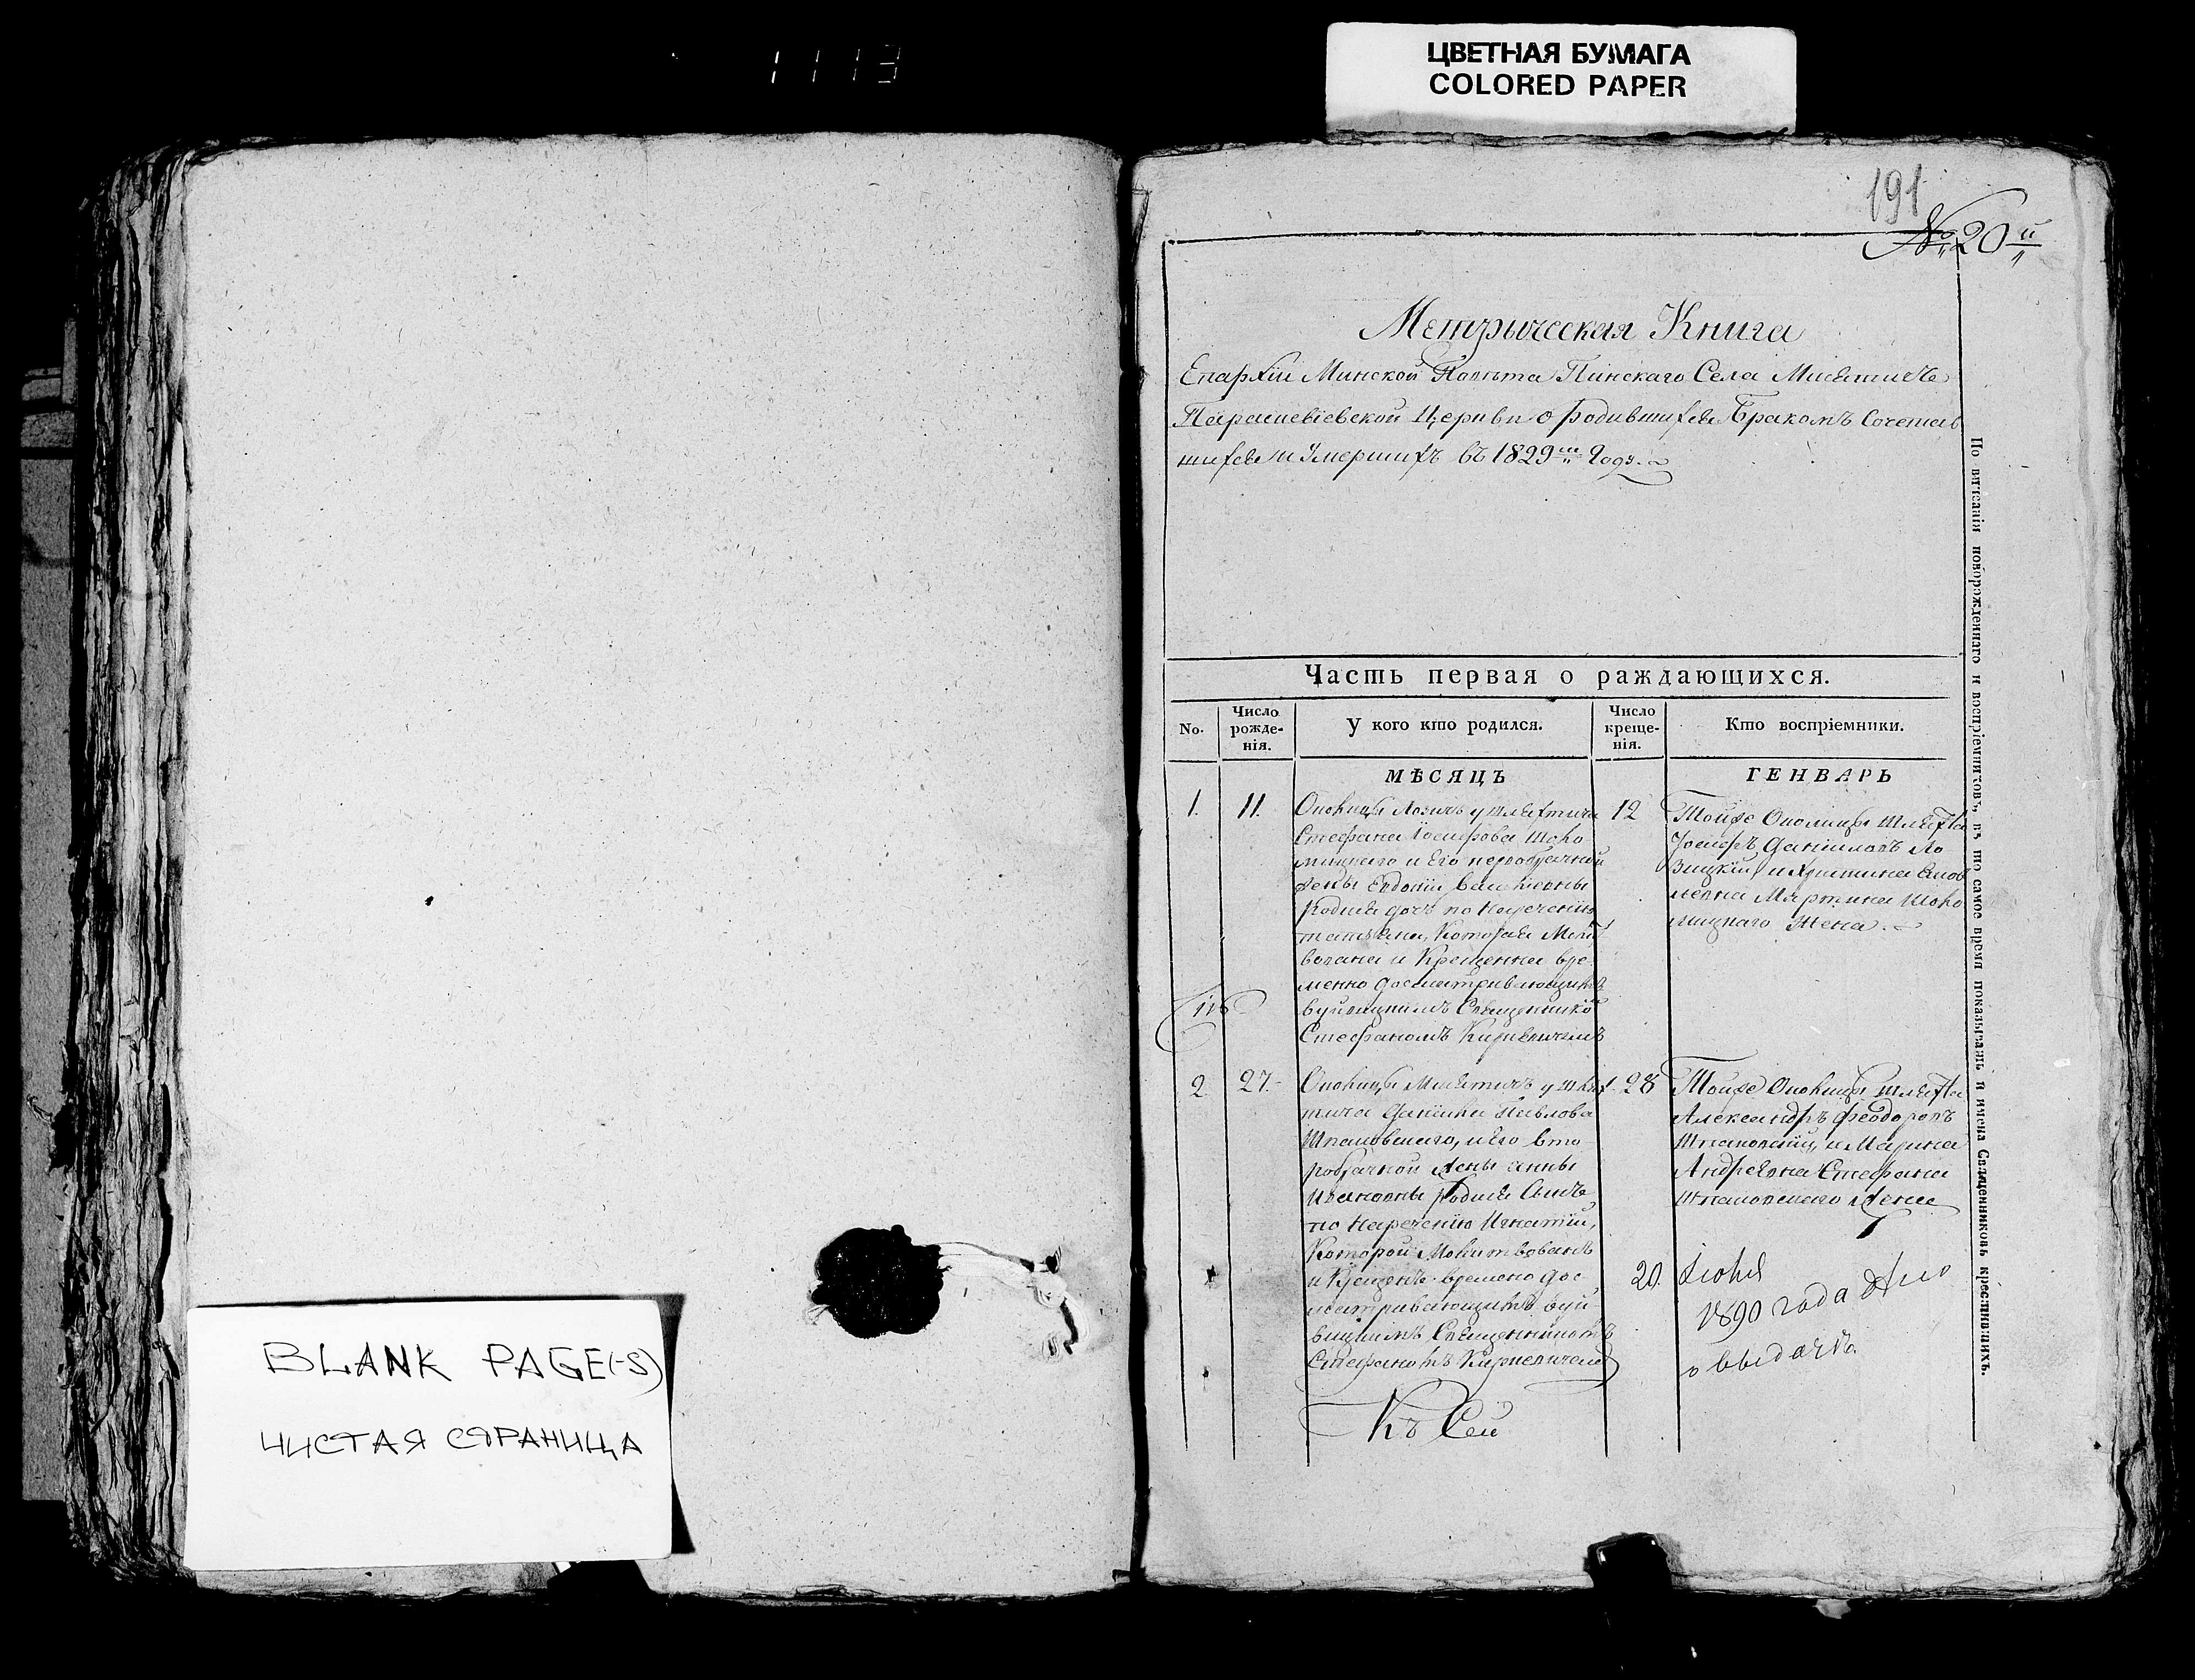 1113
ЦВЕТНАЯ БУМАГА
COLORED PAPER
BLANK PAGE(-S)
ЧИСТАЯ СТРАНИЦА
191
№ 20й
Метрическая Книга
Епархіи Минской Повѣта Пинскаго Села Мисятичъ
Параскевіевской Церкви о родившихся Бракомъ Сочетав
шихся и Умершихъ въ 1829м Году.
Часть первая о раждающихся.
No.
Число рожде- нія.
У кого кто родился.
Число креще- нія.
Кто воспріемники.
МѢСЯЦЪ
ГЕНВАРЬ
1.
11.
Околицы у шляхтича
Стефана Іосифова Шоло
мицкаго и Его первобрачной
жены Евдокіи
родися дочь по нареченію
татьяна, Которая Молит
вована и Крещенна вре
менно досматривающимъ
Священнико
Стефаномъ Киркевичемъ
12
Тойже Околицы шляхта
Іосифъ Даніиловъ Ло
зицкій и Христина
Мартина Шоло
мицкаго Жена.
2
27.
Околицы Мисятичъ у шлях
тича Даніила Павлова
Шпаковскаго, и Его вто
робрачной жены анны
Ивановны родися Сынъ
по Нареченію Игнатій,
Которой Молитвованъ
и Крещенъ времено дос
матривающимъ
Священникомъ
Стефаномъ Киркевичемъ
28
Тойже Околицы шляхта
Александръ Феодоровъ
Шпаковскій, и Марина
Андреевна Стефана
Шпаковскаго жена
20. Іюня
1890 года
о выдачѣ
Къ Сей
По взысканіи новорожденнаго и воспріемниковъ, въ то самое время показывать и имена Священниковъ крестившихъ.